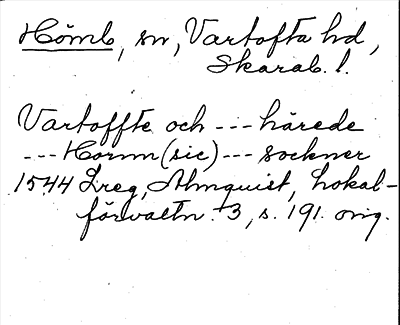 Hömb, sn, Vartofta hd,
Skarab. l.
Vartoffte och --- härede
--- Hornn (sic) --- sockner
1544 Lreg, Almquist, Lokal-
förvaltn. 3, s. 191. orig.